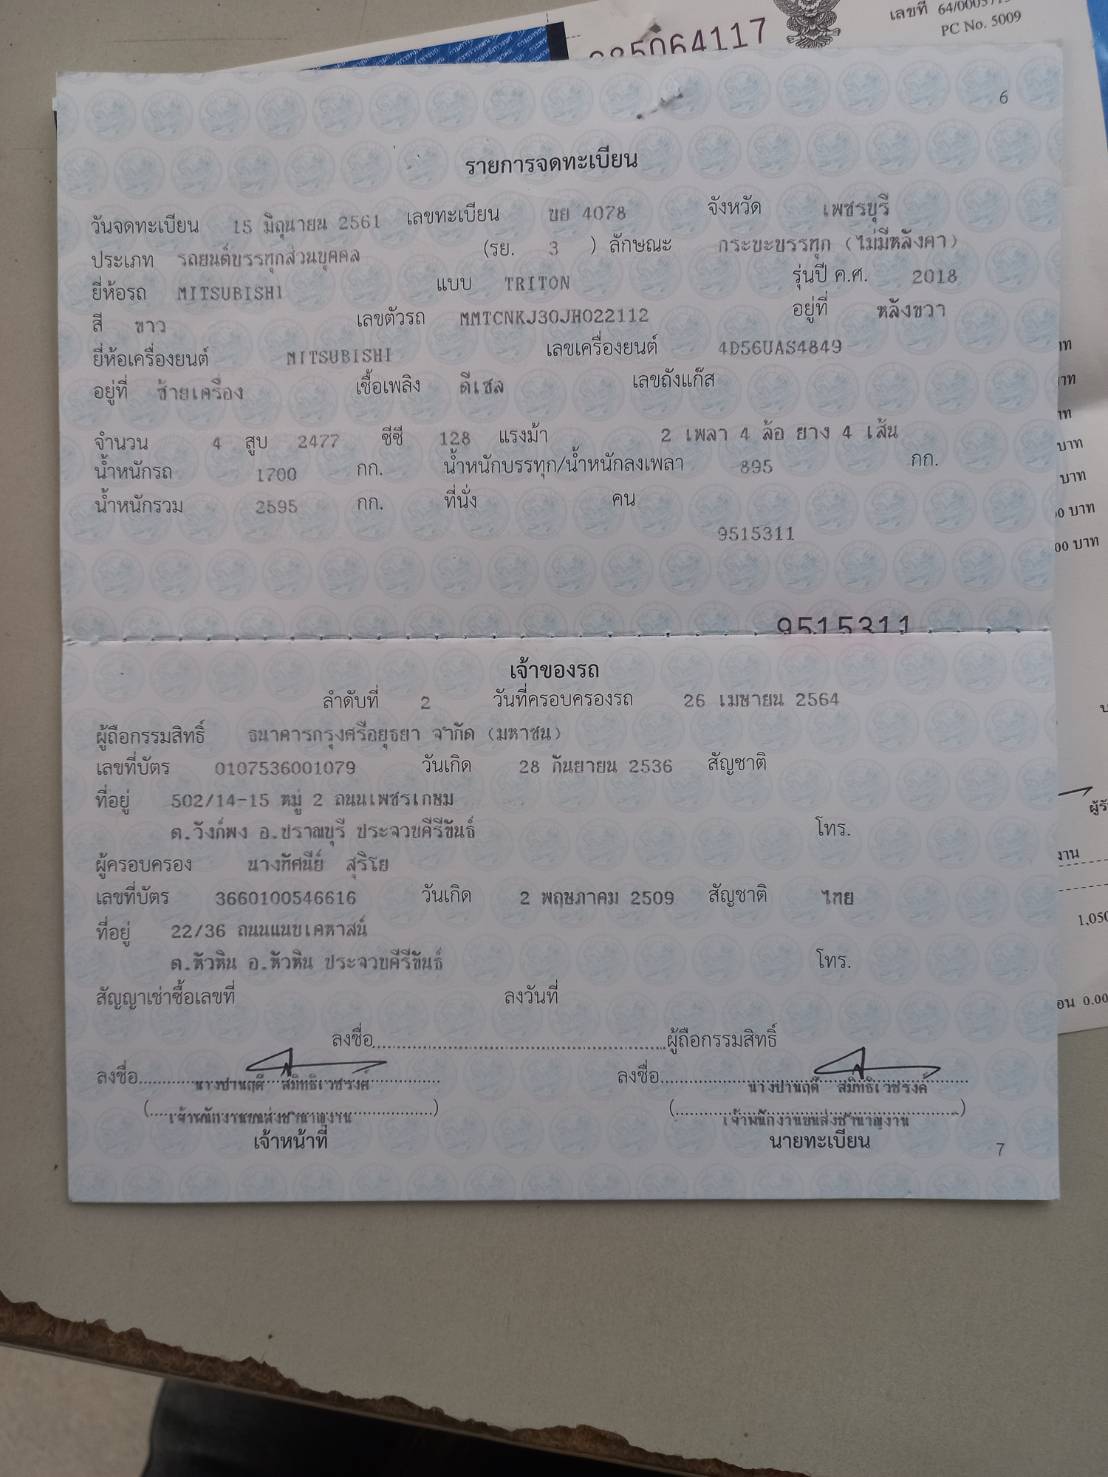 เลขที่ 64/0005
PC No. 5009
6
รายการจดทะเบียน
วันจดทะเบียน 15 มิถุนายน 2561 เลขทะเบียน บย 4078 จังหวัด เพชรบุรี
ประเภท รถยนต์บรรทุกส่วนบุคคล (รย. 3 ) ลักษณะ กระบะบรรทุก (ไม่มีหลังคา)
ยี่ห้อรถ MITSUBISHI แบบ TRITON รุ่นปี ค.ศ. 2018
สี ขาว เลขตัวรถ MMTCNKJ30JH022112 อยู่ที่ หลังขวา
ยี่ห้อเครื่องยนต์ MITSUBISHI เลขเครื่องยนต์ 4D56UAS4849
อยู่ที่ ซ้ายเครื่อง เชื้อเพลิง ดีเซล เลขถังแก๊ส
จำนวน 4 สูบ 2477 ซีซี 128 แรงม้า 2 เพลา 4 ล้อ ยาง 4 เส้น
น้ำหนักรถ 1700 กก. น้ำหนักบรรทุก/น้ำหนักลงเพลา 895 กก.
น้ำหนักรวม 2595 กก. ที่นั่ง คน
9515311
9515311
เจ้าของรถ
ลำดับที่ 2 วันที่ครอบครองรถ 26 เมษายน 2564
ผู้ถือกรรมสิทธิ์ ธนาคารกรุงศรีอยุธยา จำกัด (มหาชน)
เลขที่บัตร 0107536001079 วันเกิด 28 กันยายน 2536 สัญชาติ
ที่อยู่ 502/14-15 หมู่ 2 ถนนเพชรเกษม
ต.วังก์พง อ.ปราณบุรี ประจวบคีรีขันธ์ โทร.
ผู้ครอบครอง นางทัศนีย์ สุริโย
เลขที่บัตร 3660100546616 วันเกิด 2 พฤษภาคม 2509 สัญชาติ ไทย
ที่อยู่ 22/36 ถนนแนบเคหาสน์
ต.หัวหิน อ.หัวหิน ประจวบคีรีขันธ์ โทร.
สัญญาเช่าซื้อเลขที่ ลงวันที่
ลงชื่อ ผู้ถือกรรมสิทธิ์
ลงชื่อ นางปานฤดี สมิทธิเวชรงค์ ลงชื่อ นางปานฤดี สมิทธิเวชรงค์
(เจ้าพนักงานขนส่งชำนาญงาน) (เจ้าพนักงานขนส่งชำนาญงาน)
เจ้าหน้าที่ นายทะเบียน
7